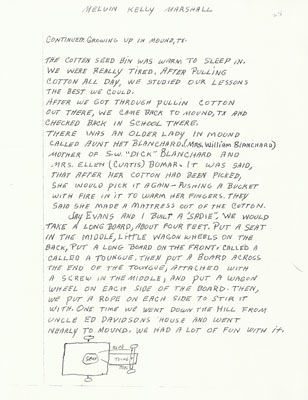 MELVIN KELLY MARSHALL
CONTINUED: GROWING UP IN MOUND, TX-
THE COTTON SEED BIN WAS WARM TO SLEEP IN.
WE WERE REALLY TIRED. AFTER PULLING
COTTON ALL DAY, WE STUDIED OUR LESSONS
THE BEST WE COULD.
AFTER WE GOT THROUGH PULLIN COTTON
OUT THERE, WE CAME BACK TO MOUND, TX AND
CHECKED BACK IN SCHOOL THERE.
THERE WAS AN OLDER LADY IN MOUND
CALLED AUNT HET BLANCHARD. (MRS. WILLIAM BLANCHARD)
MOTHER OF S.W. "DICK" BLANCHARD AND
MRS. ELLEN (CURTIS) BOMAR. IT WAS SAID,
THAT AFTER HER COTTON HAD BEEN PICKED,
SHE WOULD PICK IT AGAIN - PUSHING A BUCKET
WITH FIRE IN IT TO WARM HER FINGERS. THEY
SAID SHE MADE A MATTRESS OUT OF THE COTTON.
JAY EVANS AND I BUILT A "SADIE". WE WOULD
TAKE A LONG BOARD, ABOUT FOUR FEET. PUT A SEAT
IN THE MIDDLE, LITTLE WAGON WHEELS ON THE
BACK, PUT A LONG BOARD ON THE FRONT. CALLED A
CALLED A TOUNGUE. THEN PUT A BOARD ACROSS
THE END OF THE TOUNGUE, ATTACHED WITH
A SCREW IN THE MIDDLE, AND PUT A WAGON
WHEEL ON EACH SIDE OF THE BOARD. THEN,
WE PUT A ROPE ON EACH SIDE TO STIR IT
WITH. ONE TIME WE WENT DOWN THE HILL FROM
UNCLE ED DAVIDSONS HOUSE AND WENT
NEARLY TO MOUND. WE HAD A LOT OF FUN WITH IT.
SEAT